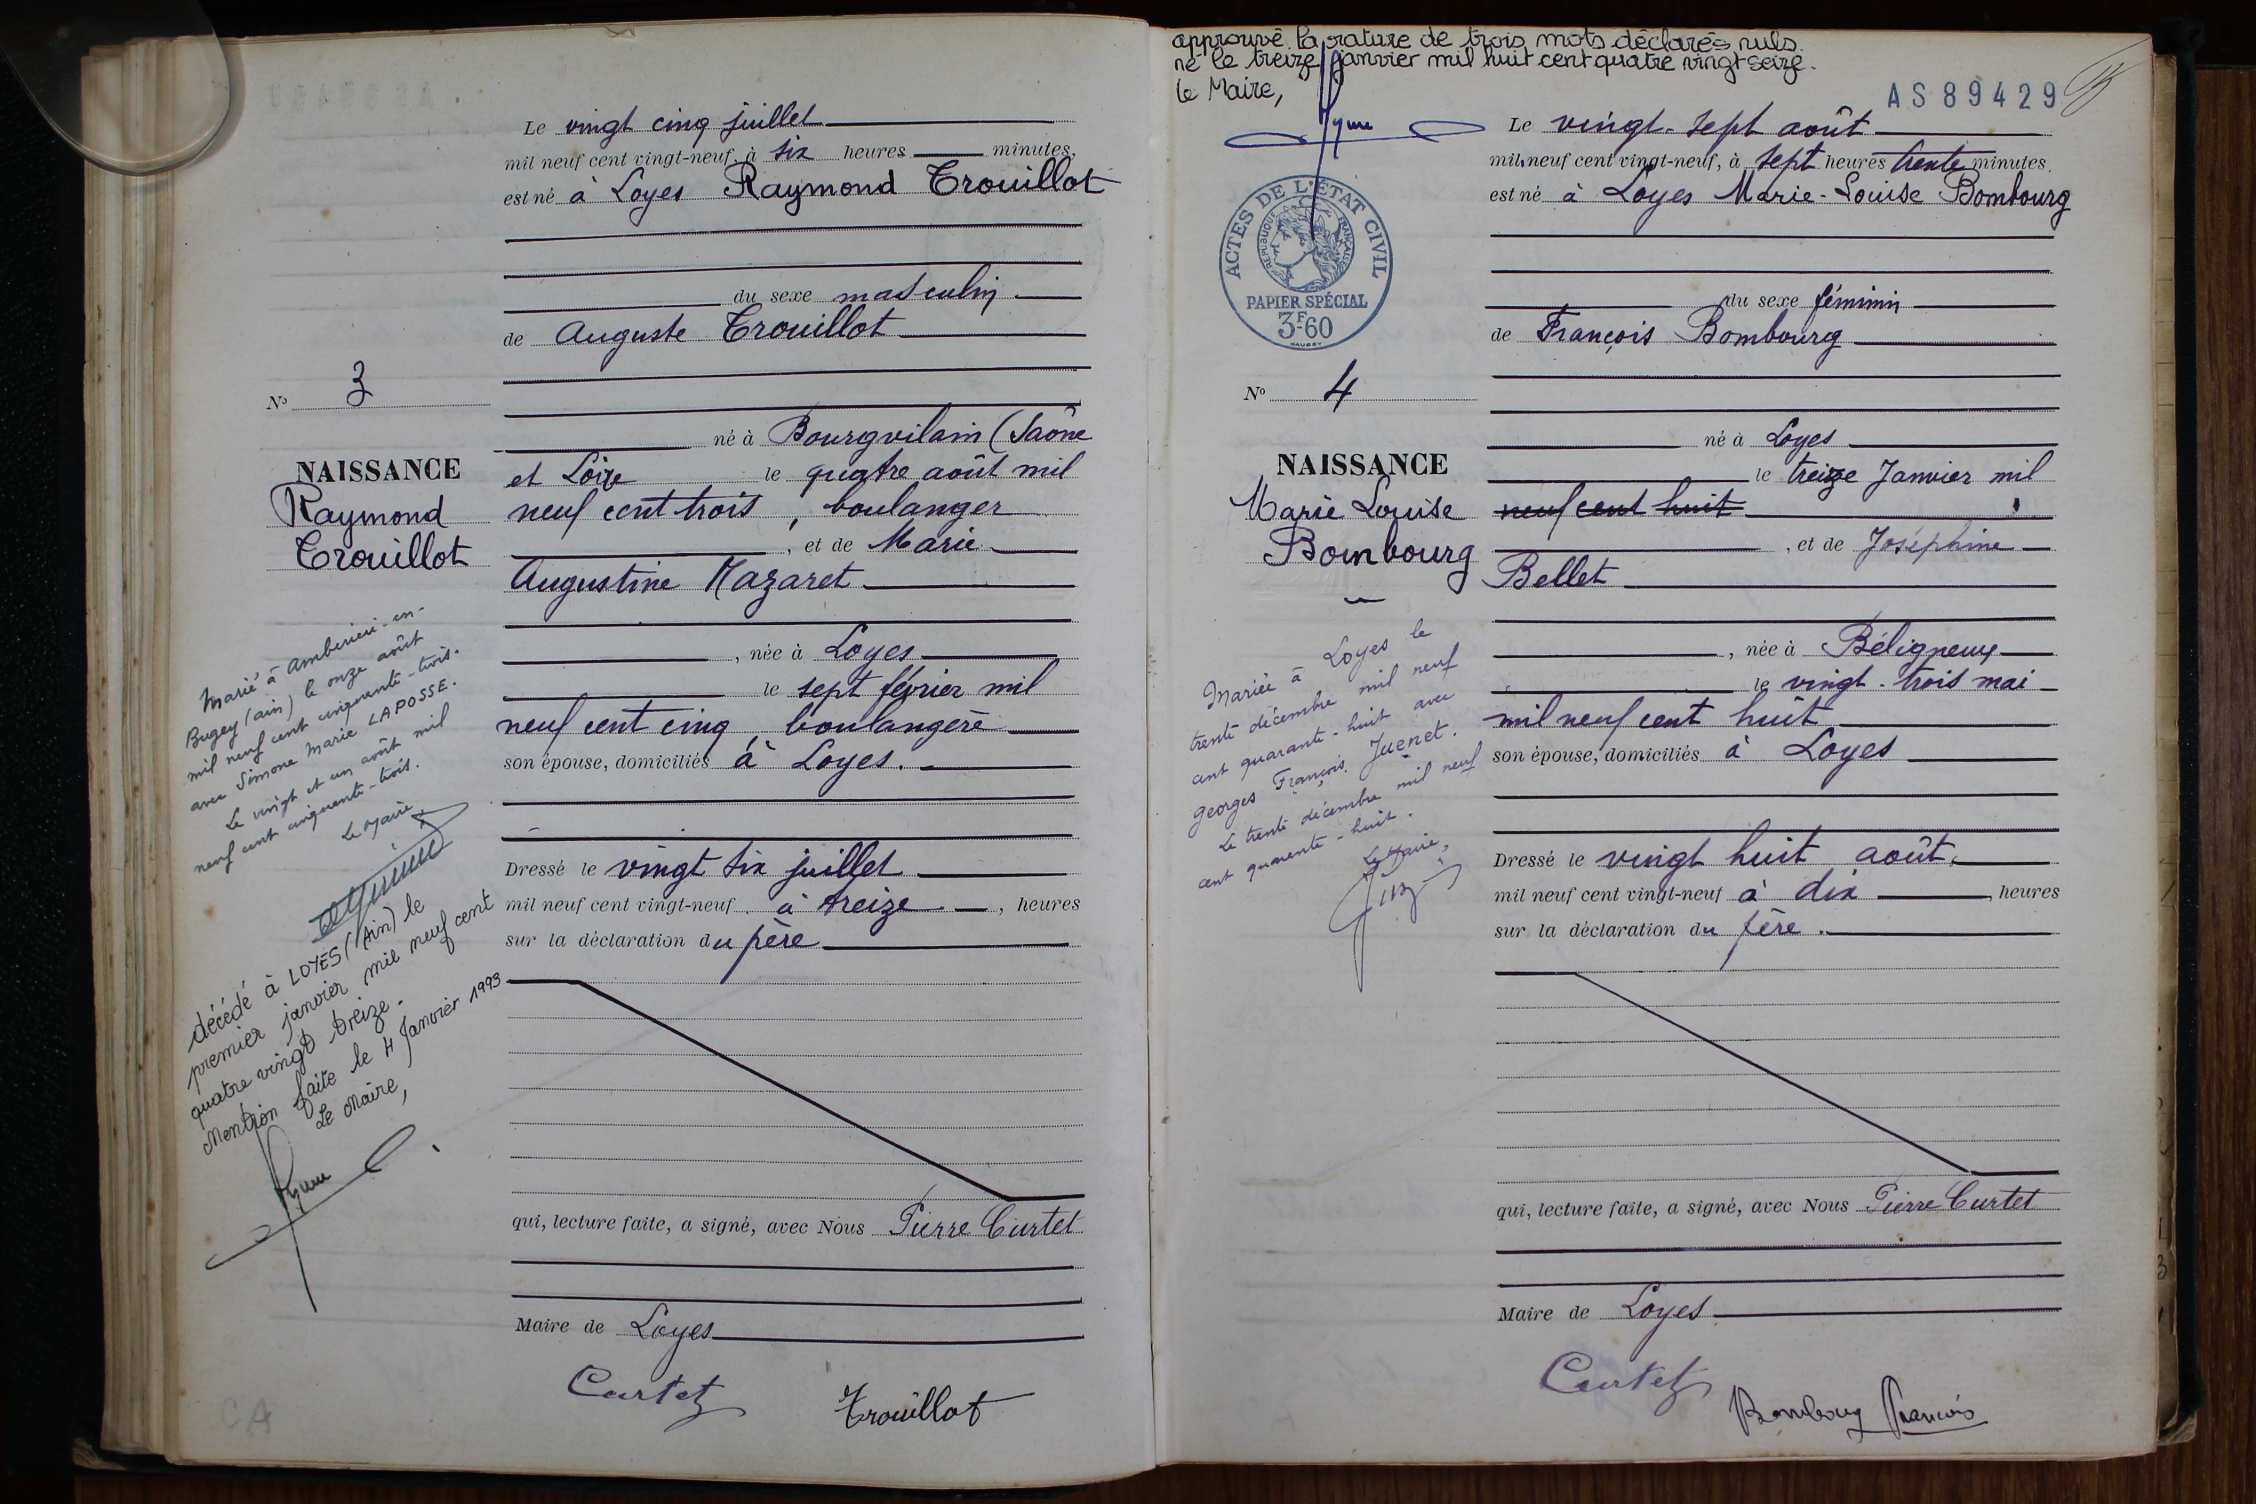 Le vingt cinq juillet
mil neuf cent vingt-neuf, à six heures minutes,
est né à Loyes Raymond Trouillot
du sexe masculin
de Auguste Trouillot
né à Bourgvilain (Saône
et Loire le quatre août mil
neuf cent trois, boulanger
, et de Marie
Augustine Nazaret
, née à Loyes
le sept février mil
neuf cent cinq, boulangère
son épouse, domiciliés à Loyes.
Dressé le vingt six juillet
mil neuf cent vingt-neuf à treize, heures
sur la déclaration du père
qui, lecture faite, a signé, avec Nous Pierre Curtet
Maire de Loyes
Curtet
Trouillot
No 3
NAISSANCE
Raymond
Trouillot
Marié à Amberieu-en-
Bugey (ain) le onze août
mil neuf cent cinquante-trois.
avec Simone Marie LAPOSSE.
Le vingt et un août mil
neuf cent cinquante-trois.
Le Maire
décédé à LOYES (Ain) le
premier janvier mil neuf cent
quatre vingt treize.
Mention faite le 4 Janvier 1993
Le Maire,
CA
approuvé la rature de trois mots déclarés nuls.
né le treize janvier mil huit cent quatre vingt seize.
Le Maire,
AS 89429
ACTES DE L'ÉTAT CIVIL
RÉPUBLIQUE FRANÇAISE
PAPIER SPÉCIAL
3F60
No 4
NAISSANCE
Marie Louise
Bombourg
Mariée à Loyes le
trente décembre mil neuf
cent quarante-huit avec
Georges François Juenet.
Le trente décembre mil neuf
cent quarante-huit.
Le Maire,
Le vingt-sept août
mil neuf cent vingt-neuf, à sept heures trente minutes.
est né à Loyes Marie-Louise Bombourg
du sexe féminin
de François Bombourg
né à Loyes
le treize Janvier mil
neuf cent huit
, et de Joséphine
Bellet
, née à Béligneux
le vingt-trois mai
mil neuf cent huit
son épouse, domiciliés à Loyes
Dressé le vingt huit août,
mil neuf cent vingt-neuf à dix, heures
sur la déclaration du père.
qui, lecture faite, a signé, avec Nous Pierre Curtet
Maire de Loyes
Curtet
Bombourg François